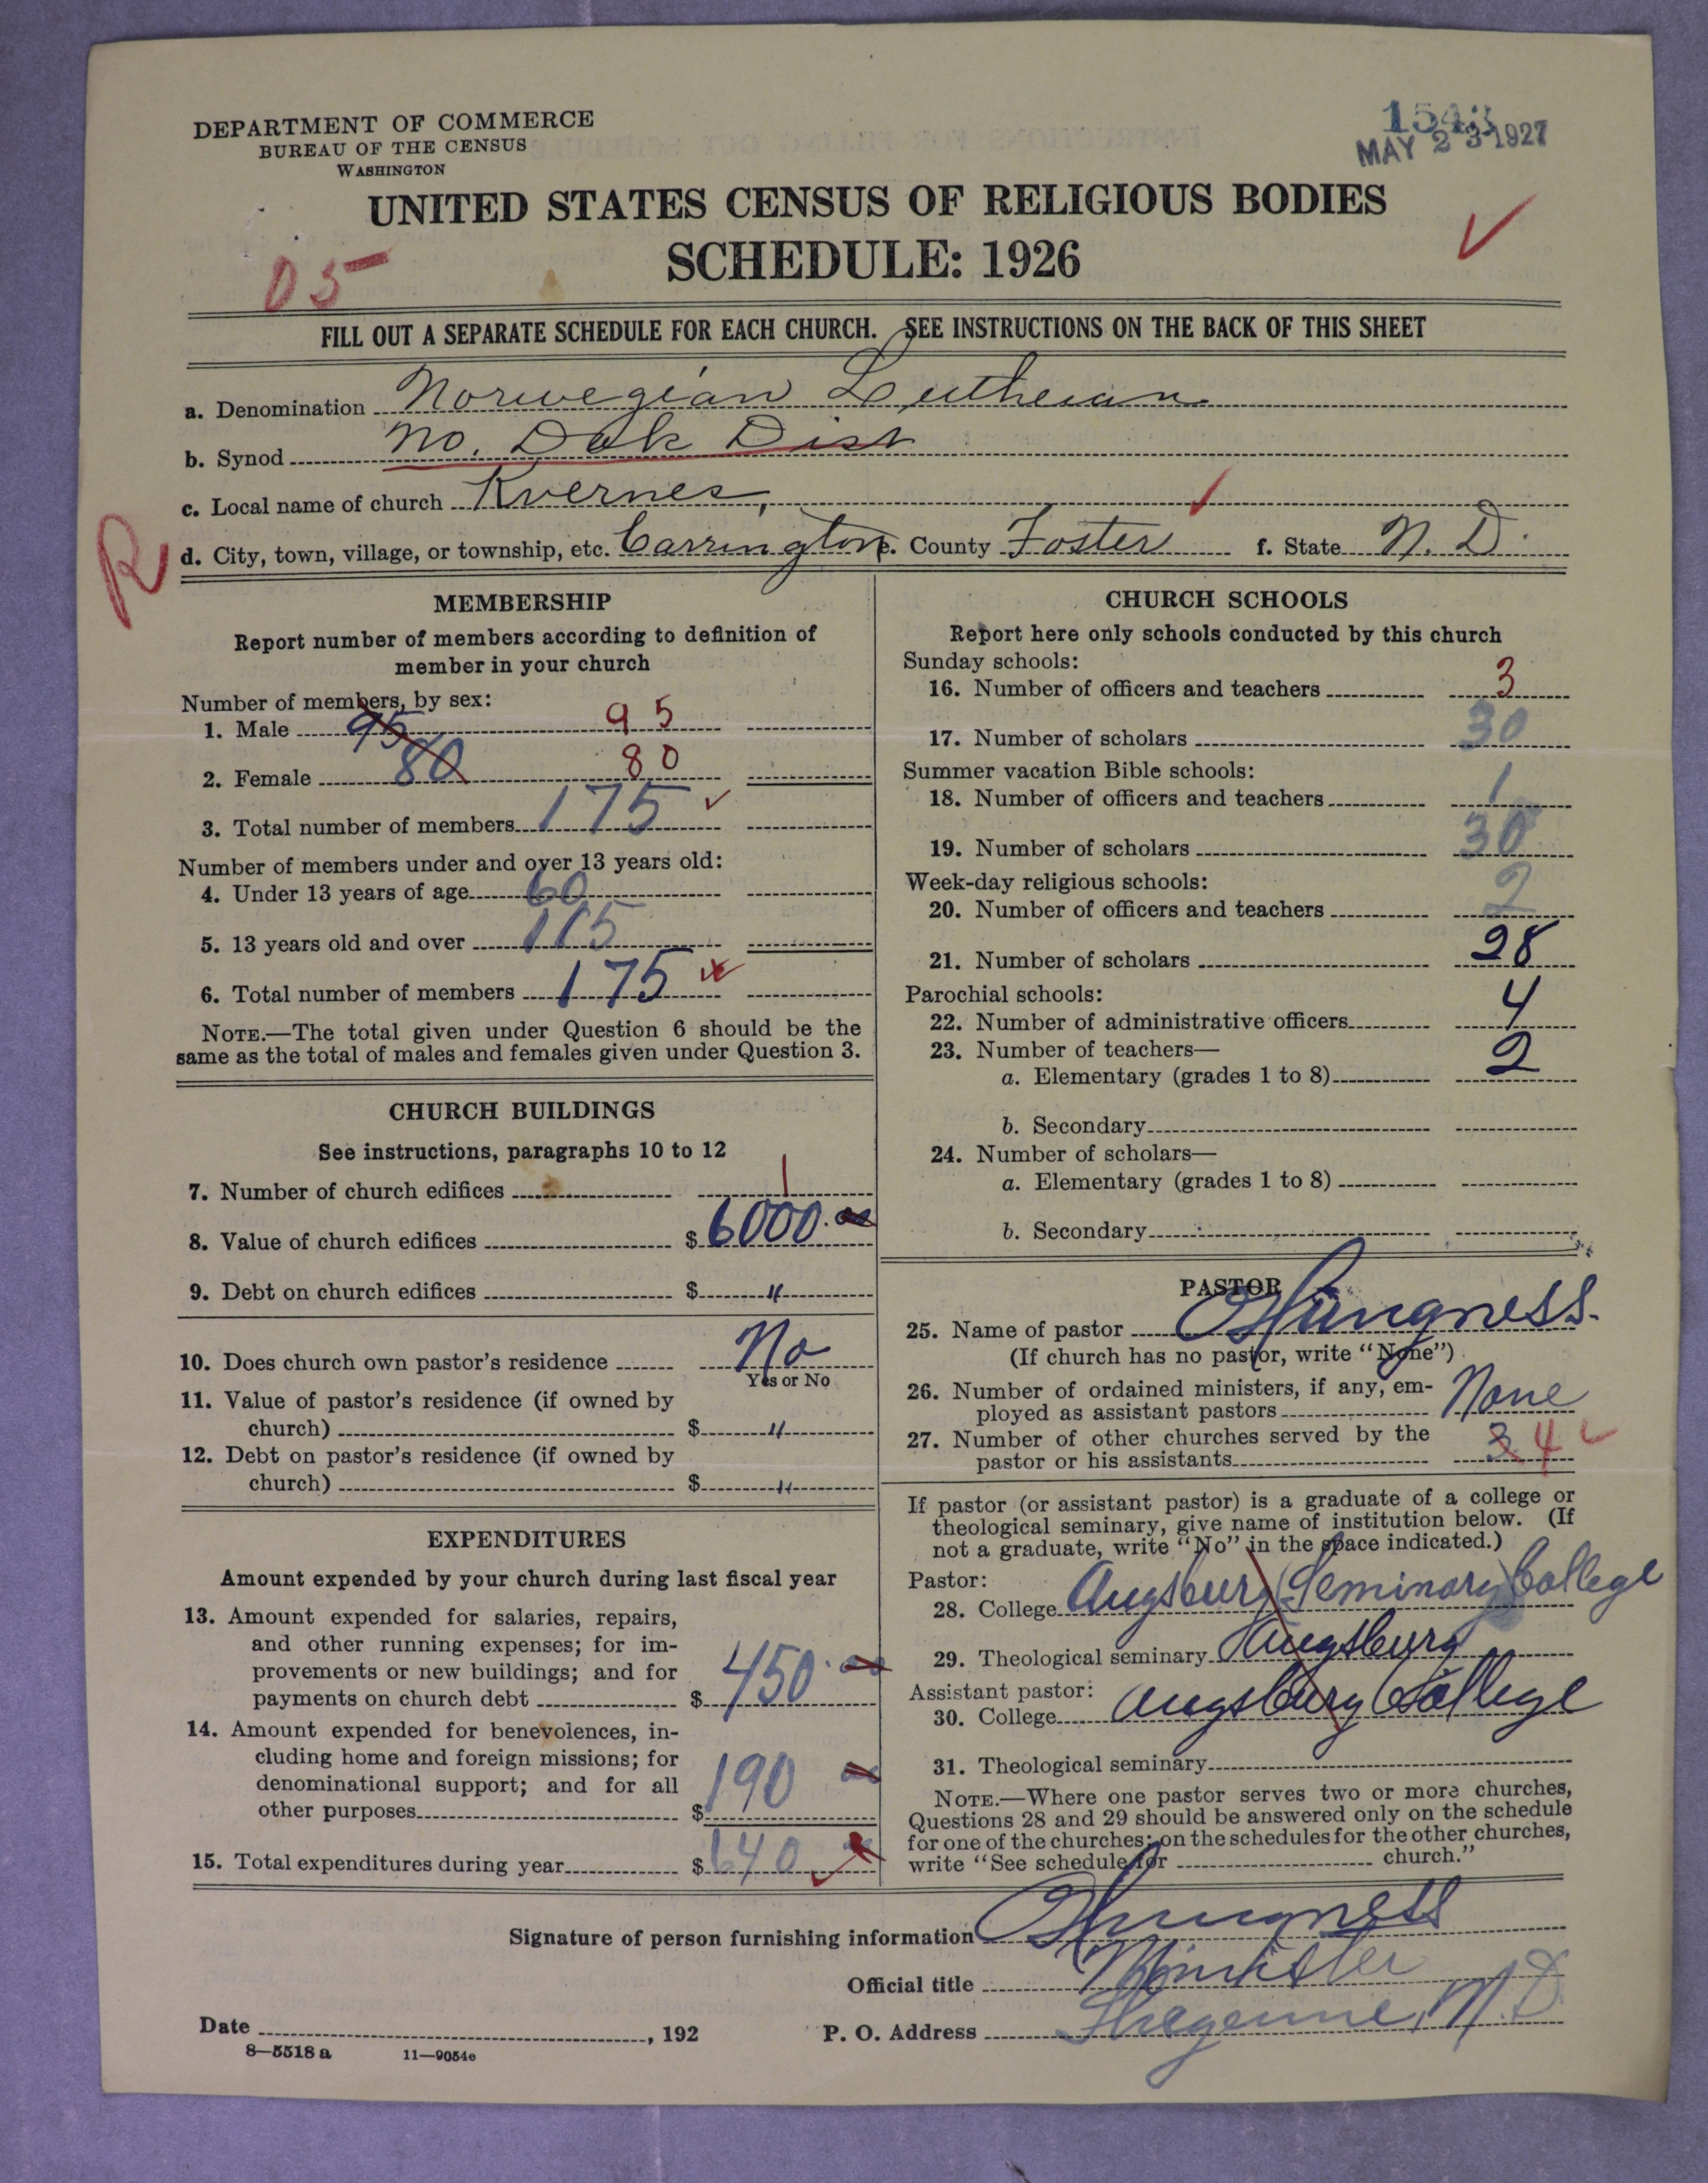 DEPARTMENT OF COMMERCE
BUREAU OF THE CENSUS
WASHINGTON
1543
MAY 23 1927
UNITED STATES CENSUS OF RELIGIOUS BODIES
SCHEDULE: 1926
05
FILL OUT A SEPARATE SCHEDULE FOR EACH CHURCH. SEE INSTRUCTIONS ON THE BACK OF THIS SHEET
a. Denomination Norwegian Lutheran
b. Synod No. Dak Dist
c. Local name of church Kvernes
R
d. City, town, village, or township, etc. Carrington e. County Foster f. State N. D.
MEMBERSHIP
Report number of members according to definition of
member in your church
Number of members, by sex:
1. Male 95 95
2. Female 80 80
3. Total number of members 175
Number of members under and over 13 years old:
4. Under 13 years of age 60
5. 13 years old and over 115
6. Total number of members 175
NOTE.—The total given under Question 6 should be the
same as the total of males and females given under Question 3.
CHURCH BUILDINGS
See instructions, paragraphs 10 to 12
7. Number of church edifices 1
8. Value of church edifices $ 6000.00
9. Debt on church edifices $ "
10. Does church own pastor's residence No
Yes or No
11. Value of pastor's residence (if owned by
church) $ "
12. Debt on pastor's residence (if owned by
church) $ "
EXPENDITURES
Amount expended by your church during last fiscal year
13. Amount expended for salaries, repairs,
and other running expenses; for im-
provements or new buildings; and for
payments on church debt $ 450.00
14. Amount expended for benevolences, in-
cluding home and foreign missions; for
denominational support; and for all
other purposes $ 190 00
15. Total expenditures during year $ 640
CHURCH SCHOOLS
Report here only schools conducted by this church
Sunday schools:
16. Number of officers and teachers 3
17. Number of scholars 30
Summer vacation Bible schools:
18. Number of officers and teachers 1
19. Number of scholars 30
Week-day religious schools:
20. Number of officers and teachers 2
21. Number of scholars 28
Parochial schools:
22. Number of administrative officers 4
23. Number of teachers—
a. Elementary (grades 1 to 8) 2
b. Secondary
24. Number of scholars—
a. Elementary (grades 1 to 8)
b. Secondary
PASTOR
25. Name of pastor
(If church has no pastor, write "None")
26. Number of ordained ministers, if any, em-
ployed as assistant pastors None
27. Number of other churches served by the
pastor or his assistants 3 4
If pastor (or assistant pastor) is a graduate of a college or
theological seminary, give name of institution below. (If
not a graduate, write "No" in the space indicated.)
Pastor:
28. College Augsburg (Seminary) College
29. Theological seminary Augsburg
Assistant pastor:
30. College Augsburg College
31. Theological seminary
NOTE.—Where one pastor serves two or more churches,
Questions 28 and 29 should be answered only on the schedule
for one of the churches; on the schedules for the other churches,
write "See schedule for church."
Signature of person furnishing information
Official title Minister
Date , 192
P. O. Address Sheyenne, N. D.
8—5518 a 11—9054e